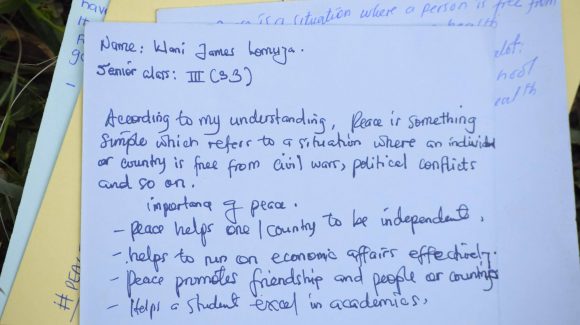 hav
is a situation where a person is free from
health
Name: Wani James Lomuja.
Senior class: III (S3)
According to my understanding, Peace is something
Simple which refers to a situation where an individ
or country is free from civil wars, political conflicts
and so on.
importance of peace.
- peace helps one / country to be independent.
- helps to run on economic affairs effectively.
- Peace promotes friendship and people or countries
- Helps a student excel in academics.
#PEACE